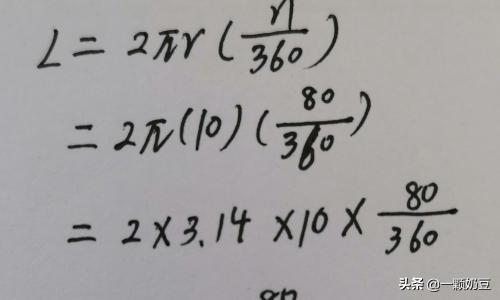 L = 2πr (n/360)
= 2π(10) (80/360)
= 2 × 3.14 × 10 × 80/360
头条 @一颗奶豆